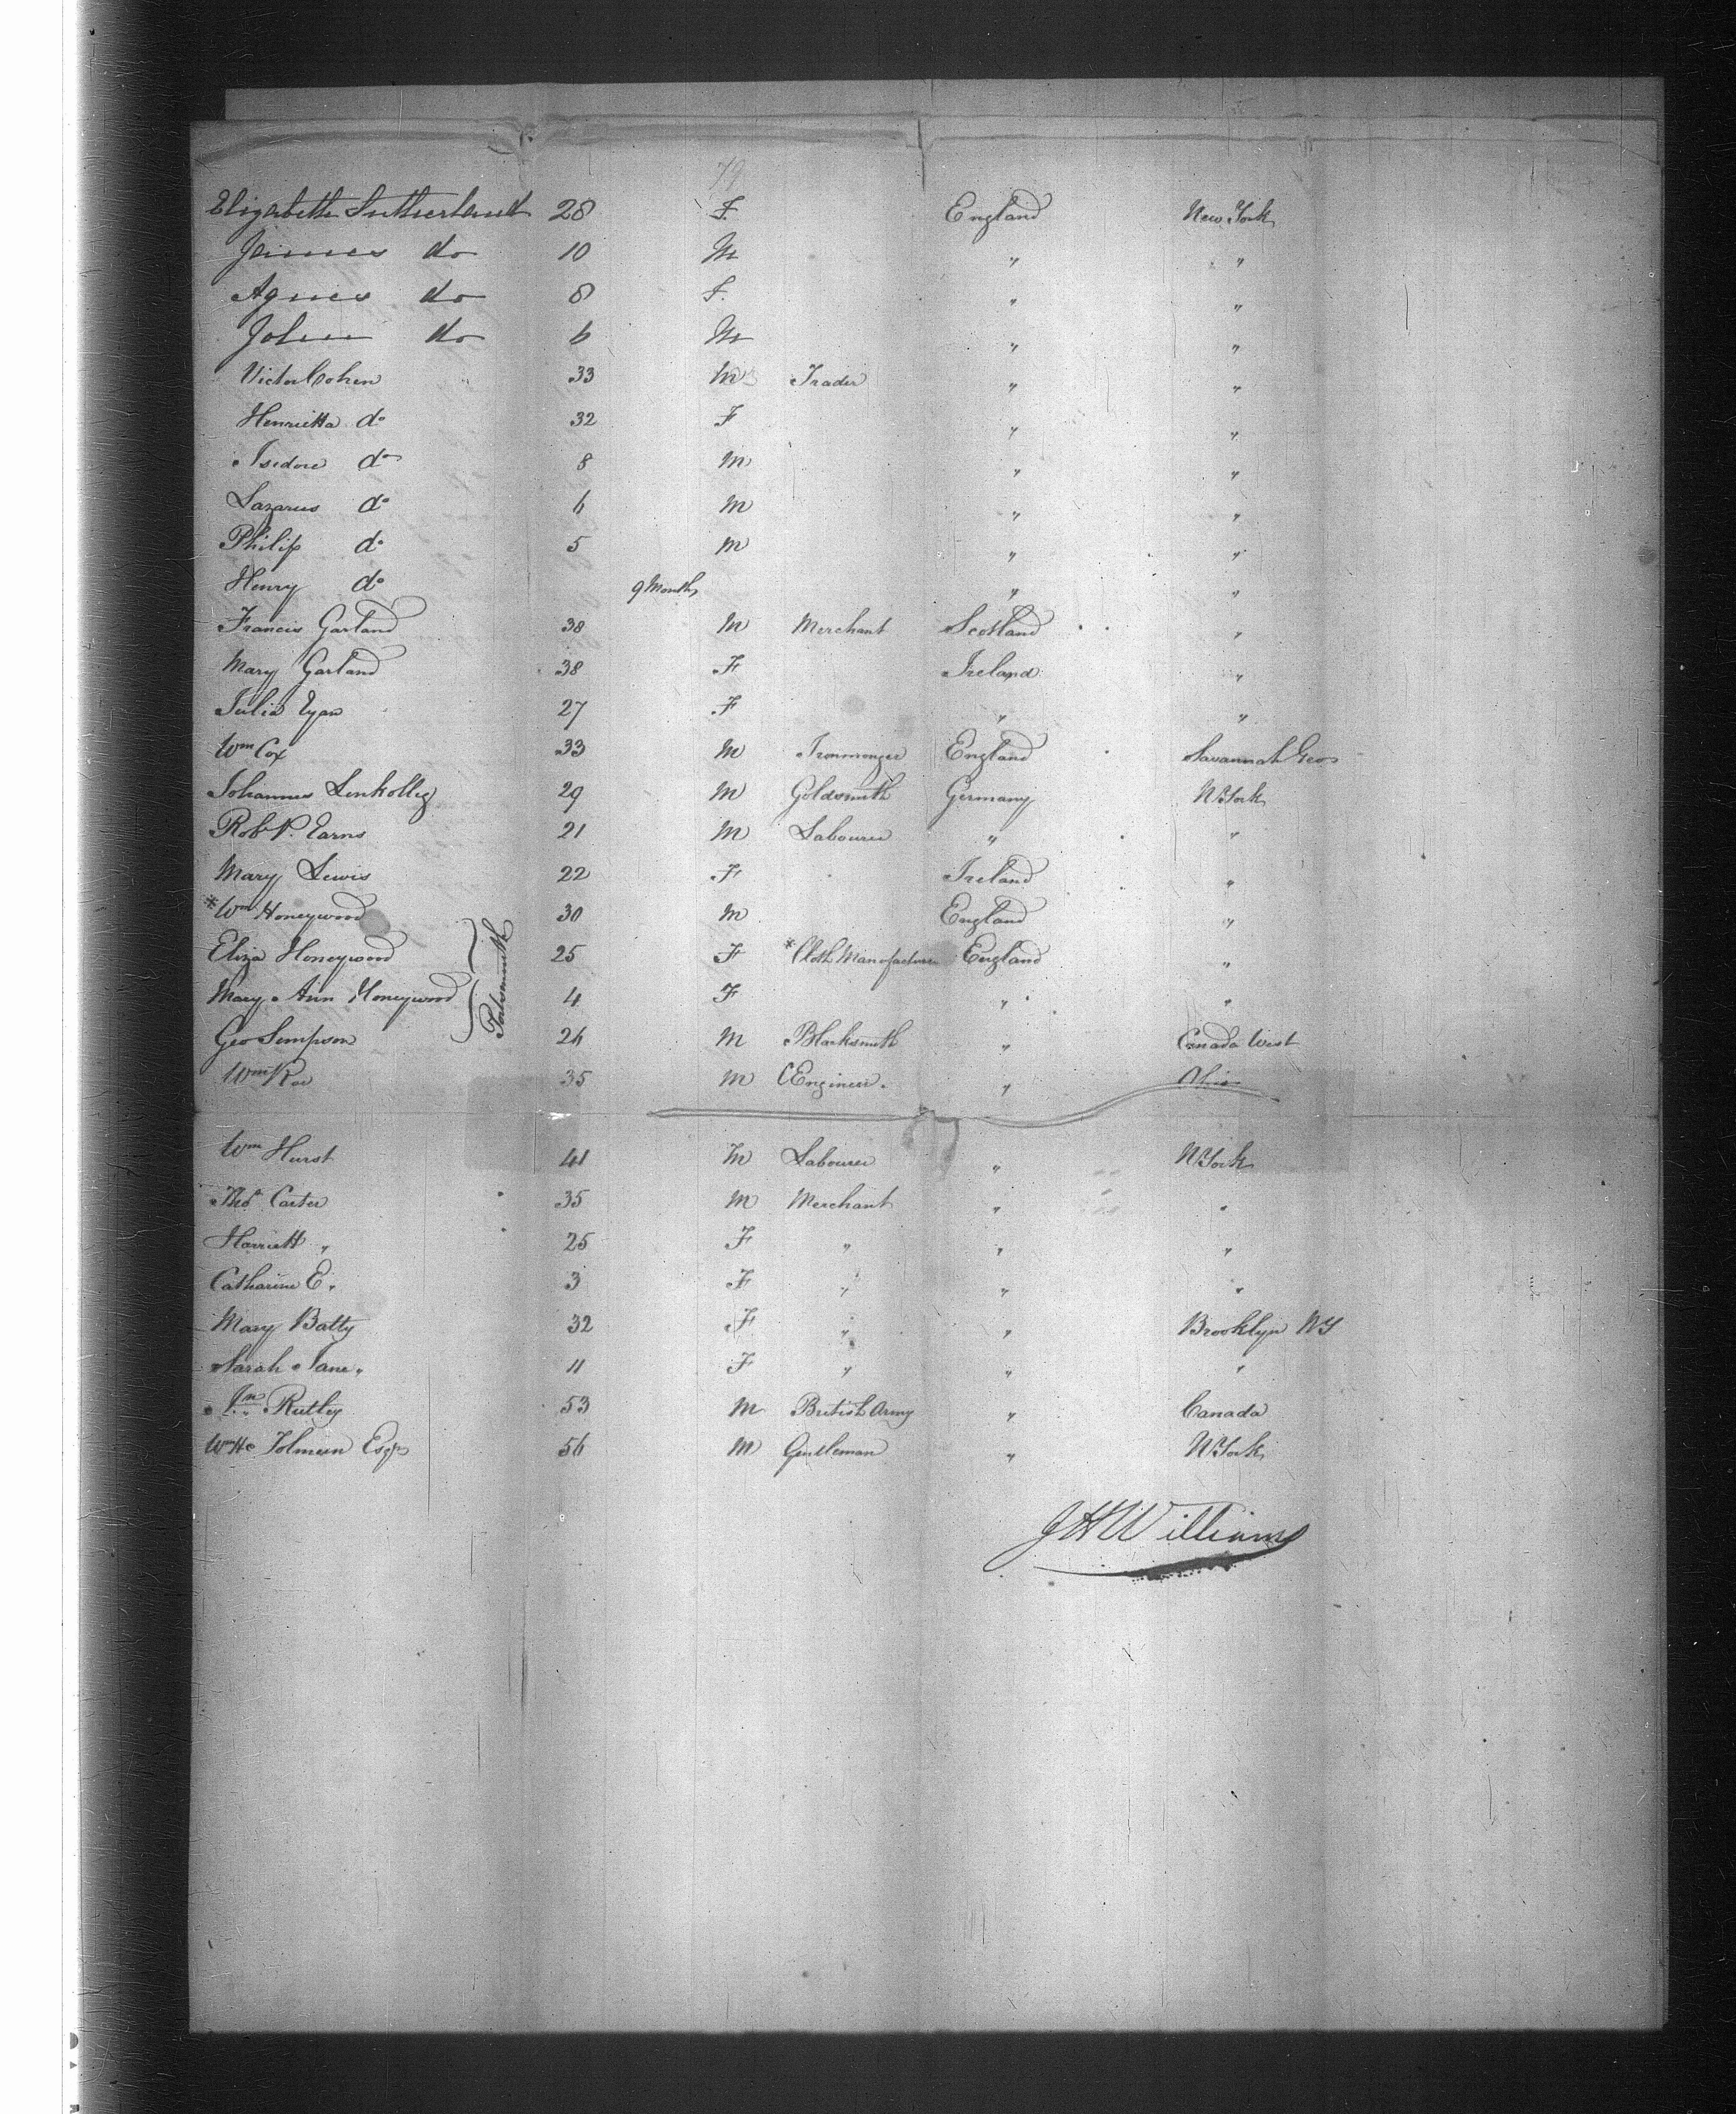 79
Elizabeth Sutherland 28 F. England New York
James do 10 M " "
Agnes do 8 F. " "
John do 6 M " "
Victor Cohen 33 M Trader " "
Henrietta do 32 F " "
Isedore do 8 M " "
Lazarus do 6 M " "
Philip do 5 M " "
Henry do 9 Months " "
Francis Garland 38 M Merchant Scotland "
Mary Garland 38 F Ireland "
Julia 27 F " "
Wm Cox 33 M Ironmonger England Savannah Geo
Johannes 29 M Goldsmith Germany N York
Robt P. 21 M Labourer " "
Mary Lewis 22 F Ireland "
*Wm Honeywood 30 M England "
Eliza Honeywood 25 F *Cloth Manufacturer England "
Mary Ann Honeywood 4 F " "
Portsmouth
Geo Simpson 26 M Blacksmith " Canada West
Wm Roe 35 M C Engineer. " Ohio
Wm Hurst 41 M Labourer " N York
Thos Carter 35 M Merchant " "
Harriett " 25 F " " "
Catharine E. " 3 F " " "
Mary Batty 32 F " " Brooklyn NY
Sarah Jane " 11 F " " "
Jno Rutley 53 M British Army " Canada
Esqr 56 M Gentleman " N York
J H Williams